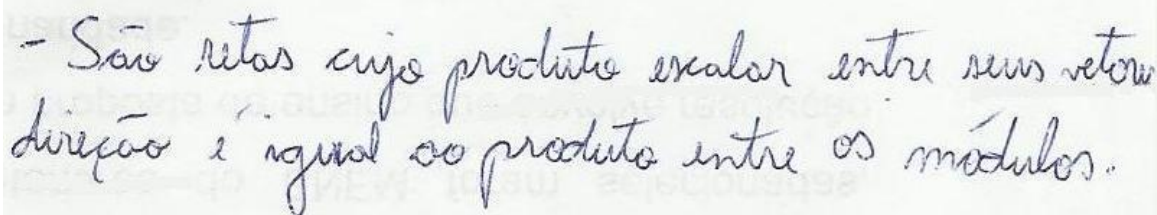 - São retas cujo produto escalar entre seus vetores
direção é igual ao produto entre os módulos.